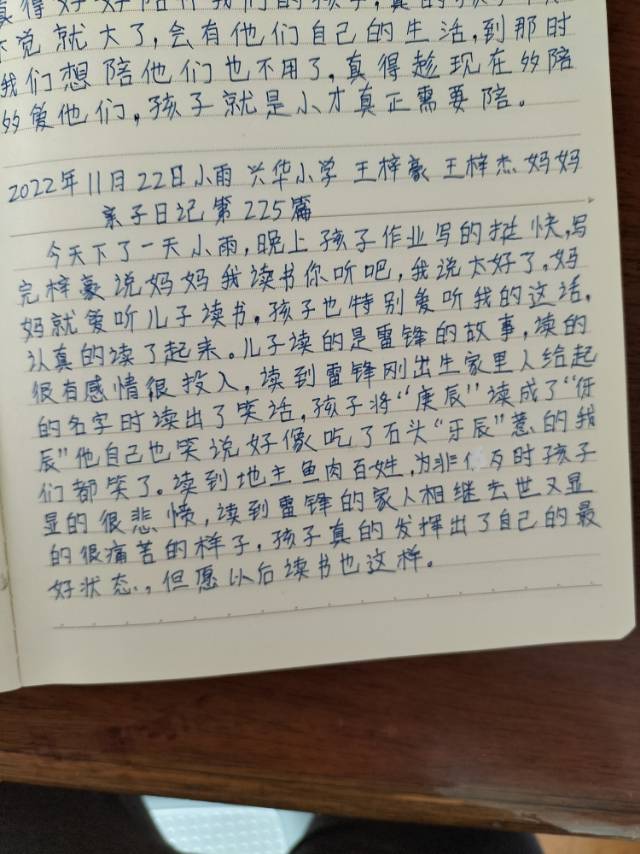 真得好好陪伴我们的孩子,真的孩子
不觉就大了,会有他们自己的生活,到那时
我们想陪他们也不用了,真得趁现在多陪
多爱他们,孩子就是小才真正需要陪。
2022年11月22日小雨 兴华小学 王梓豪 王梓杰妈妈
亲子日记第225篇
今天下了一天小雨,晚上孩子作业写的挺快,写
完梓豪说妈妈我读书你听吧,我说太好了。妈
妈就爱听儿子读书。孩子也特别爱听我的这话,
认真的读了起来。儿子读的是雷锋的故事,读的
很有感情很投入,读到雷锋刚出生家里人给起
的名字时读出了笑话,孩子将“庚辰”读成了“伢
辰”他自己也笑说好像吃了石头“牙辰”惹的我
们都笑了。读到地主鱼肉百姓,为非作歹时孩子
显的很悲愤,读到雷锋的家人相继去世又显
的很痛苦的样子,孩子真的发挥出了自己的最
好状态,但愿以后读书也这样。